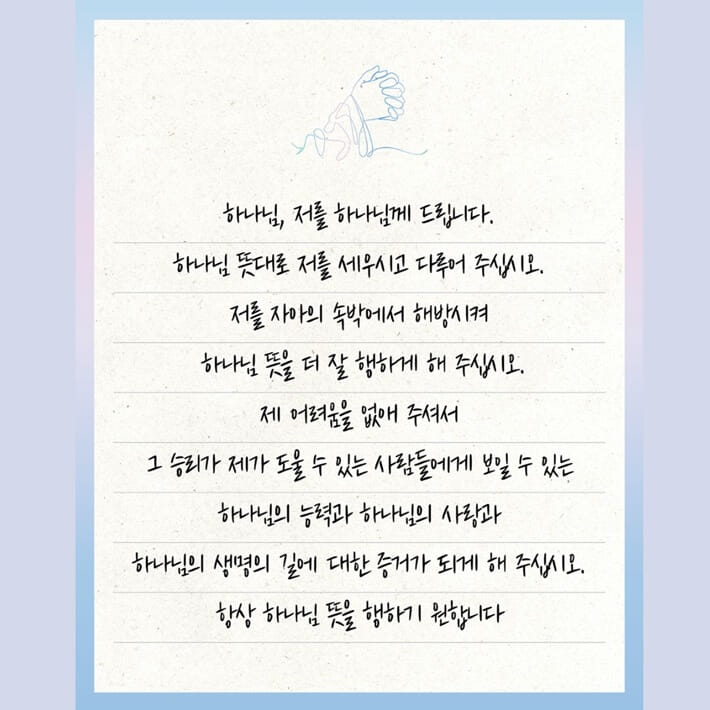 하나님, 저를 하나님께 드립니다.
하나님 뜻대로 저를 세우시고 다루어 주십시오.
저를 자아의 속박에서 해방시켜
하나님 뜻을 더 잘 행하게 해 주십시오.
제 어려움을 없애 주셔서
그 승리가 제가 도울 수 있는 사람들에게 보일 수 있는
하나님의 능력과 하나님의 사랑과
하나님의 생명의 길에 대한 증거가 되게 해 주십시오.
항상 하나님 뜻을 행하기 원합니다